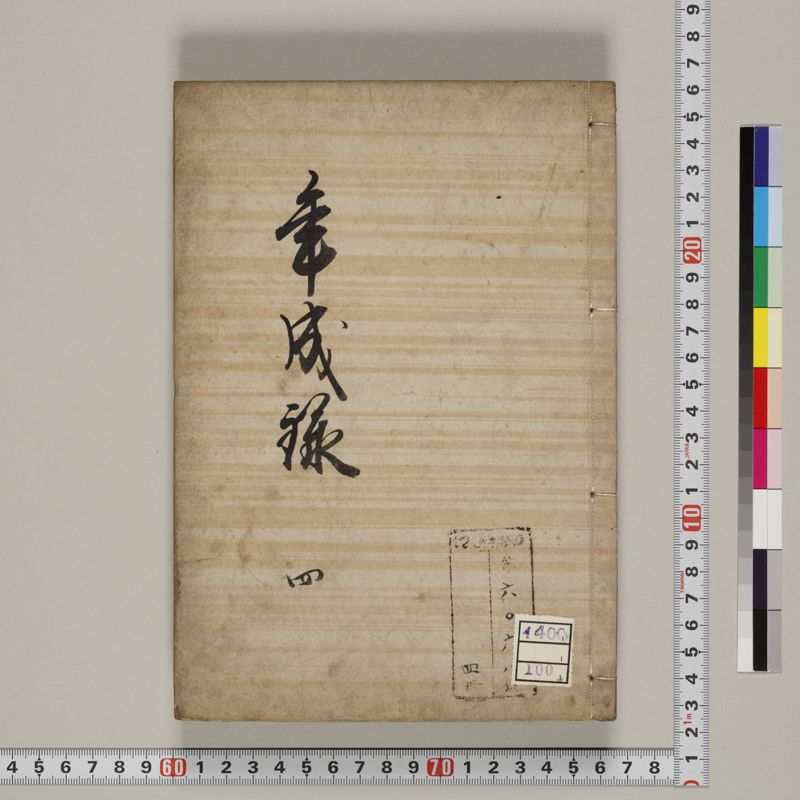 年成録
四
六〇六八
四
1400
100
9 8 7 6 5 4 3 2 1 20 9 8 7 6 5 4 3 2 1 10 9 8 7 6 5 4 3 2 1
4 5 6 7 8 9 60 1 2 3 4 5 6 7 8 9 70 1 2 3 4 5 6 7 8